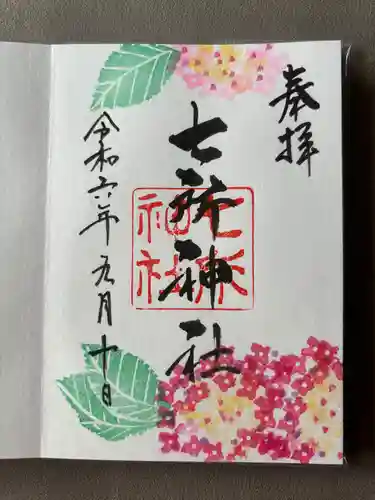 奉拝
七所神社
七所神社
令和六年九月十日